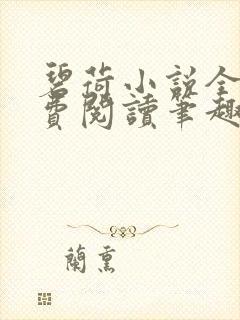 碧荷小說全
費閱讀筆趣
蘭熏